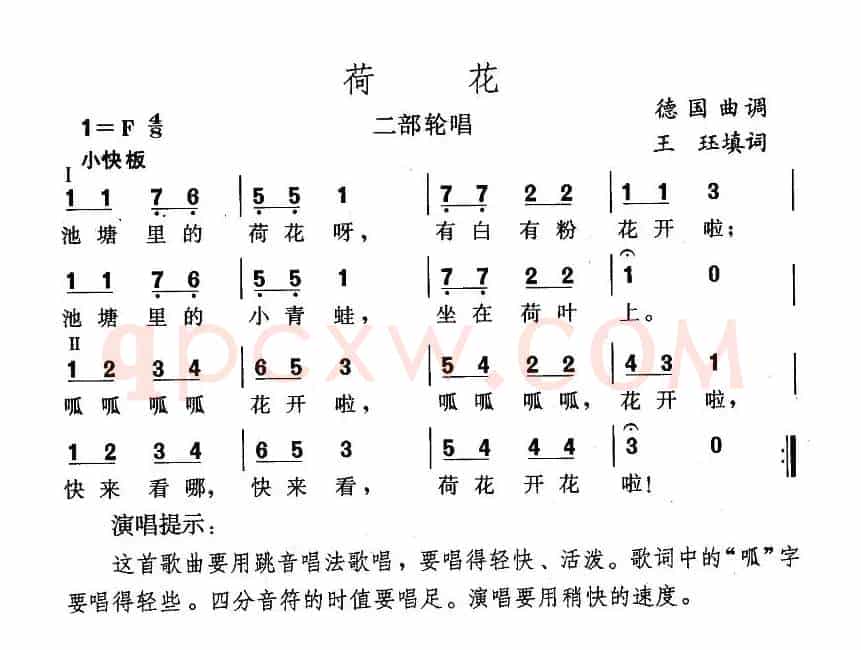 荷 花
二部轮唱
德国曲调
王 珏填词
1=F 4/8
小快板
I
1 1 7 6 | 5 5 1 | 7 7 2 2 | 1 1 3 |
池塘里的 荷花呀， 有白有粉 花开啦；
1 1 7 6 | 5 5 1 | 7 7 2 2 | 1 0 |
池塘里的 小青蛙， 坐在荷叶 上。
II
1 2 3 4 | 6 5 3 | 5 4 2 2 | 4 3 1 |
呱呱呱呱 花开啦， 呱呱呱呱， 花开啦，
1 2 3 4 | 6 5 3 | 5 4 4 4 | 3 0 :|
快来看哪， 快来看， 荷花开花 啦！
qpcxw.com
演唱提示：
这首歌曲要用跳音唱法歌唱，要唱得轻快、活泼。歌词中的“呱”字
要唱得轻些。四分音符的时值要唱足。演唱要用稍快的速度。